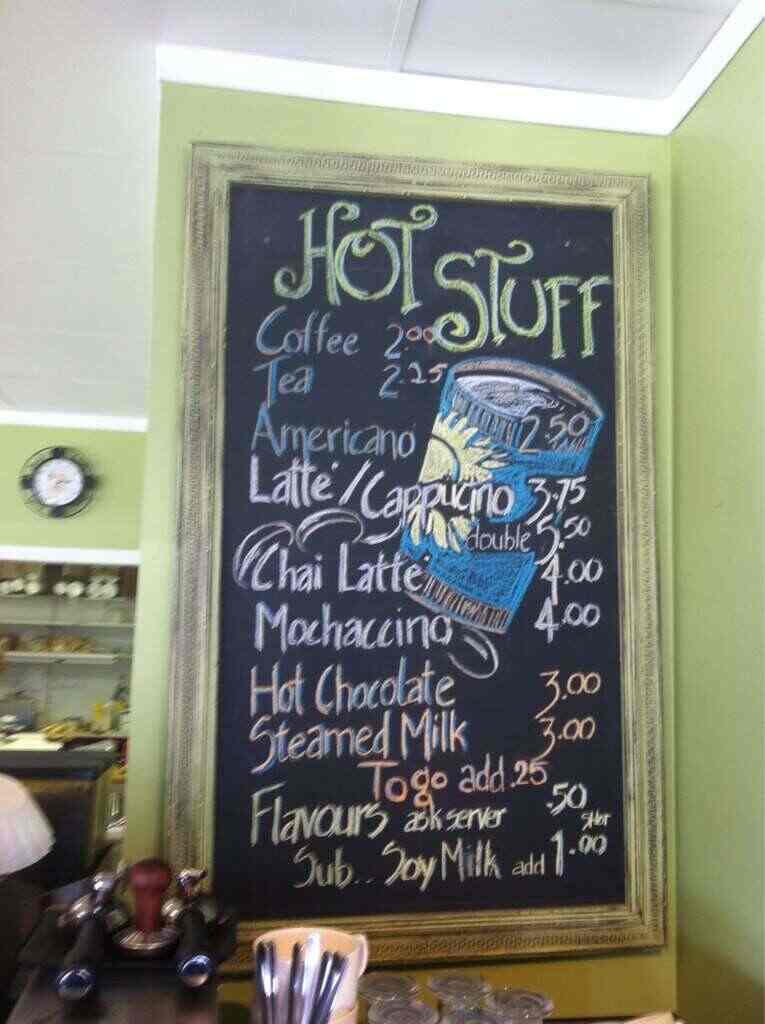 HOT STUFF
Coffee 2.00
Tea 2.25
Americano 2.50
Latte/Cappucino 3.75
double 5.50
Chai Latte 4.00
Mochaccino 4.00
Hot Chocolate 3.00
Steamed Milk 3.00
To go add .25
Flavours ask server .50
Sub.. Soy Milk add 1.00